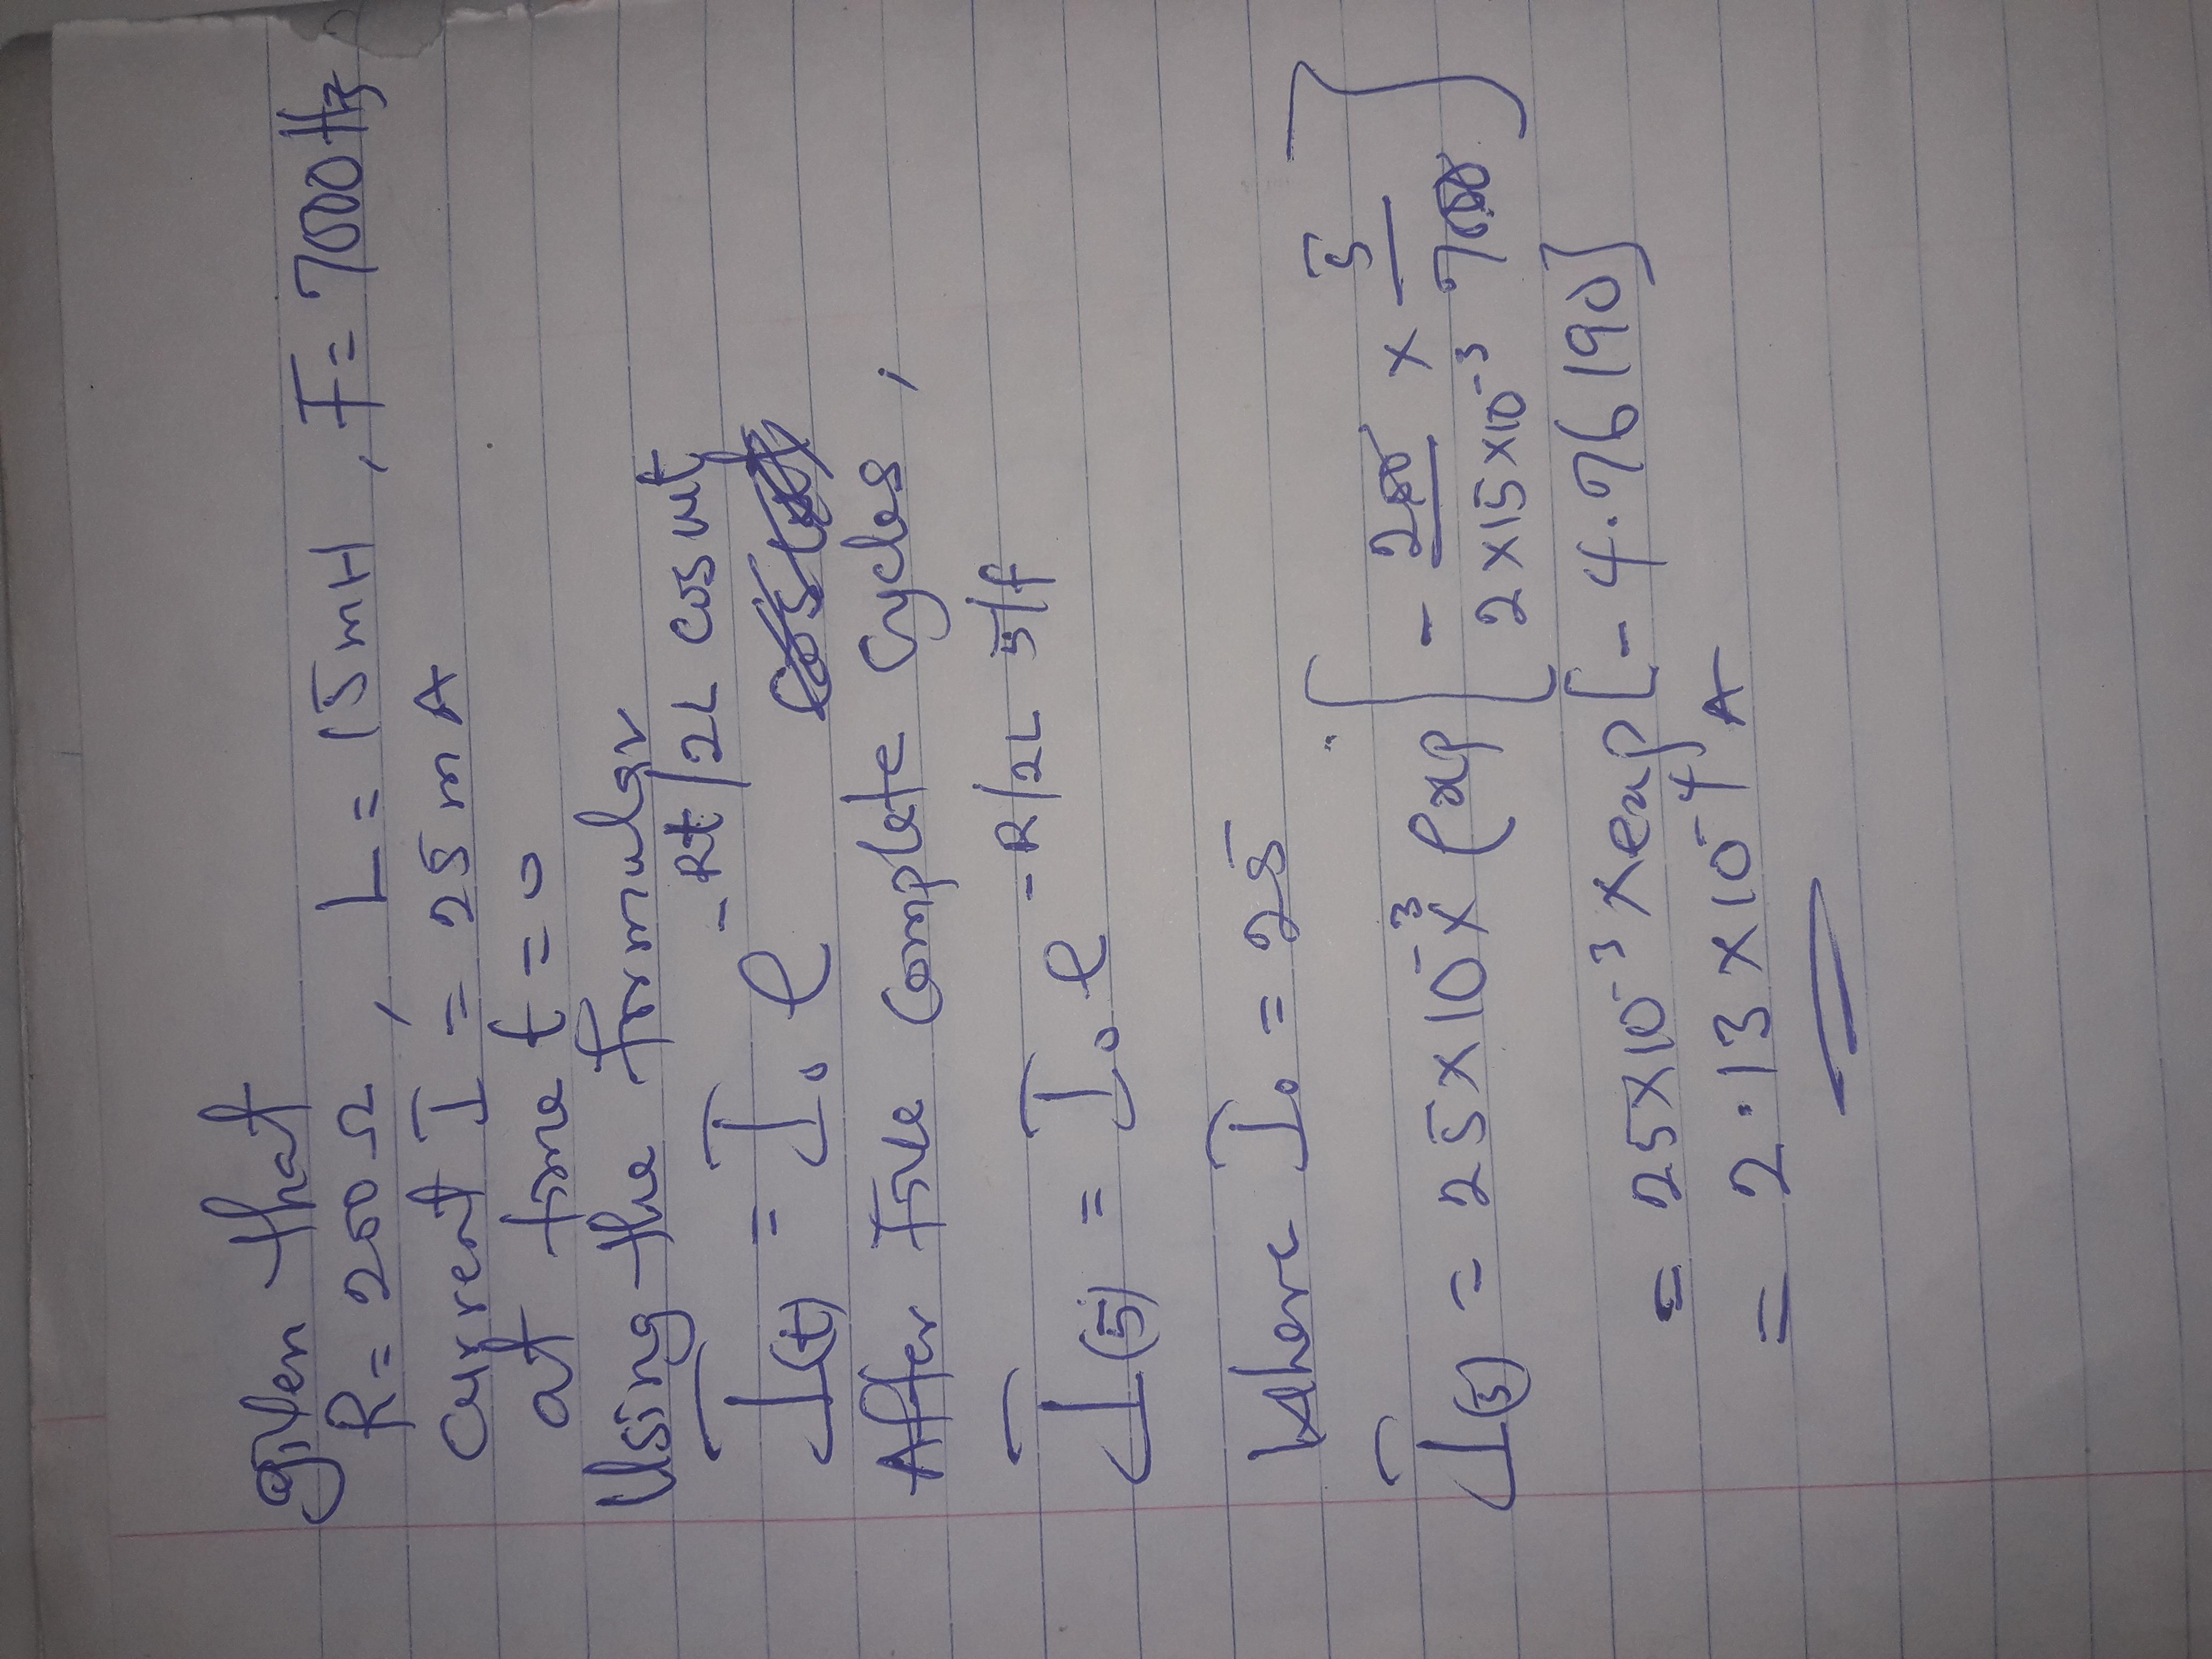 given that
R = 200Ω, L = 15mH, F = 7000Hz
current I = 25mA
at time t = 0
Using the formular
I(t) = I₀ e^-Rt/2L cos wt
After Five Complete Cycles,
I(5) = I₀ e^-R/2L 5/f
Where I₀ = 25
I(5) = 25×10⁻³ × exp [ - 200/2×15×10⁻³ × 5/7000 ]
= 25×10⁻³ × exp[-4.76190]
= 2.13×10⁻⁴ A